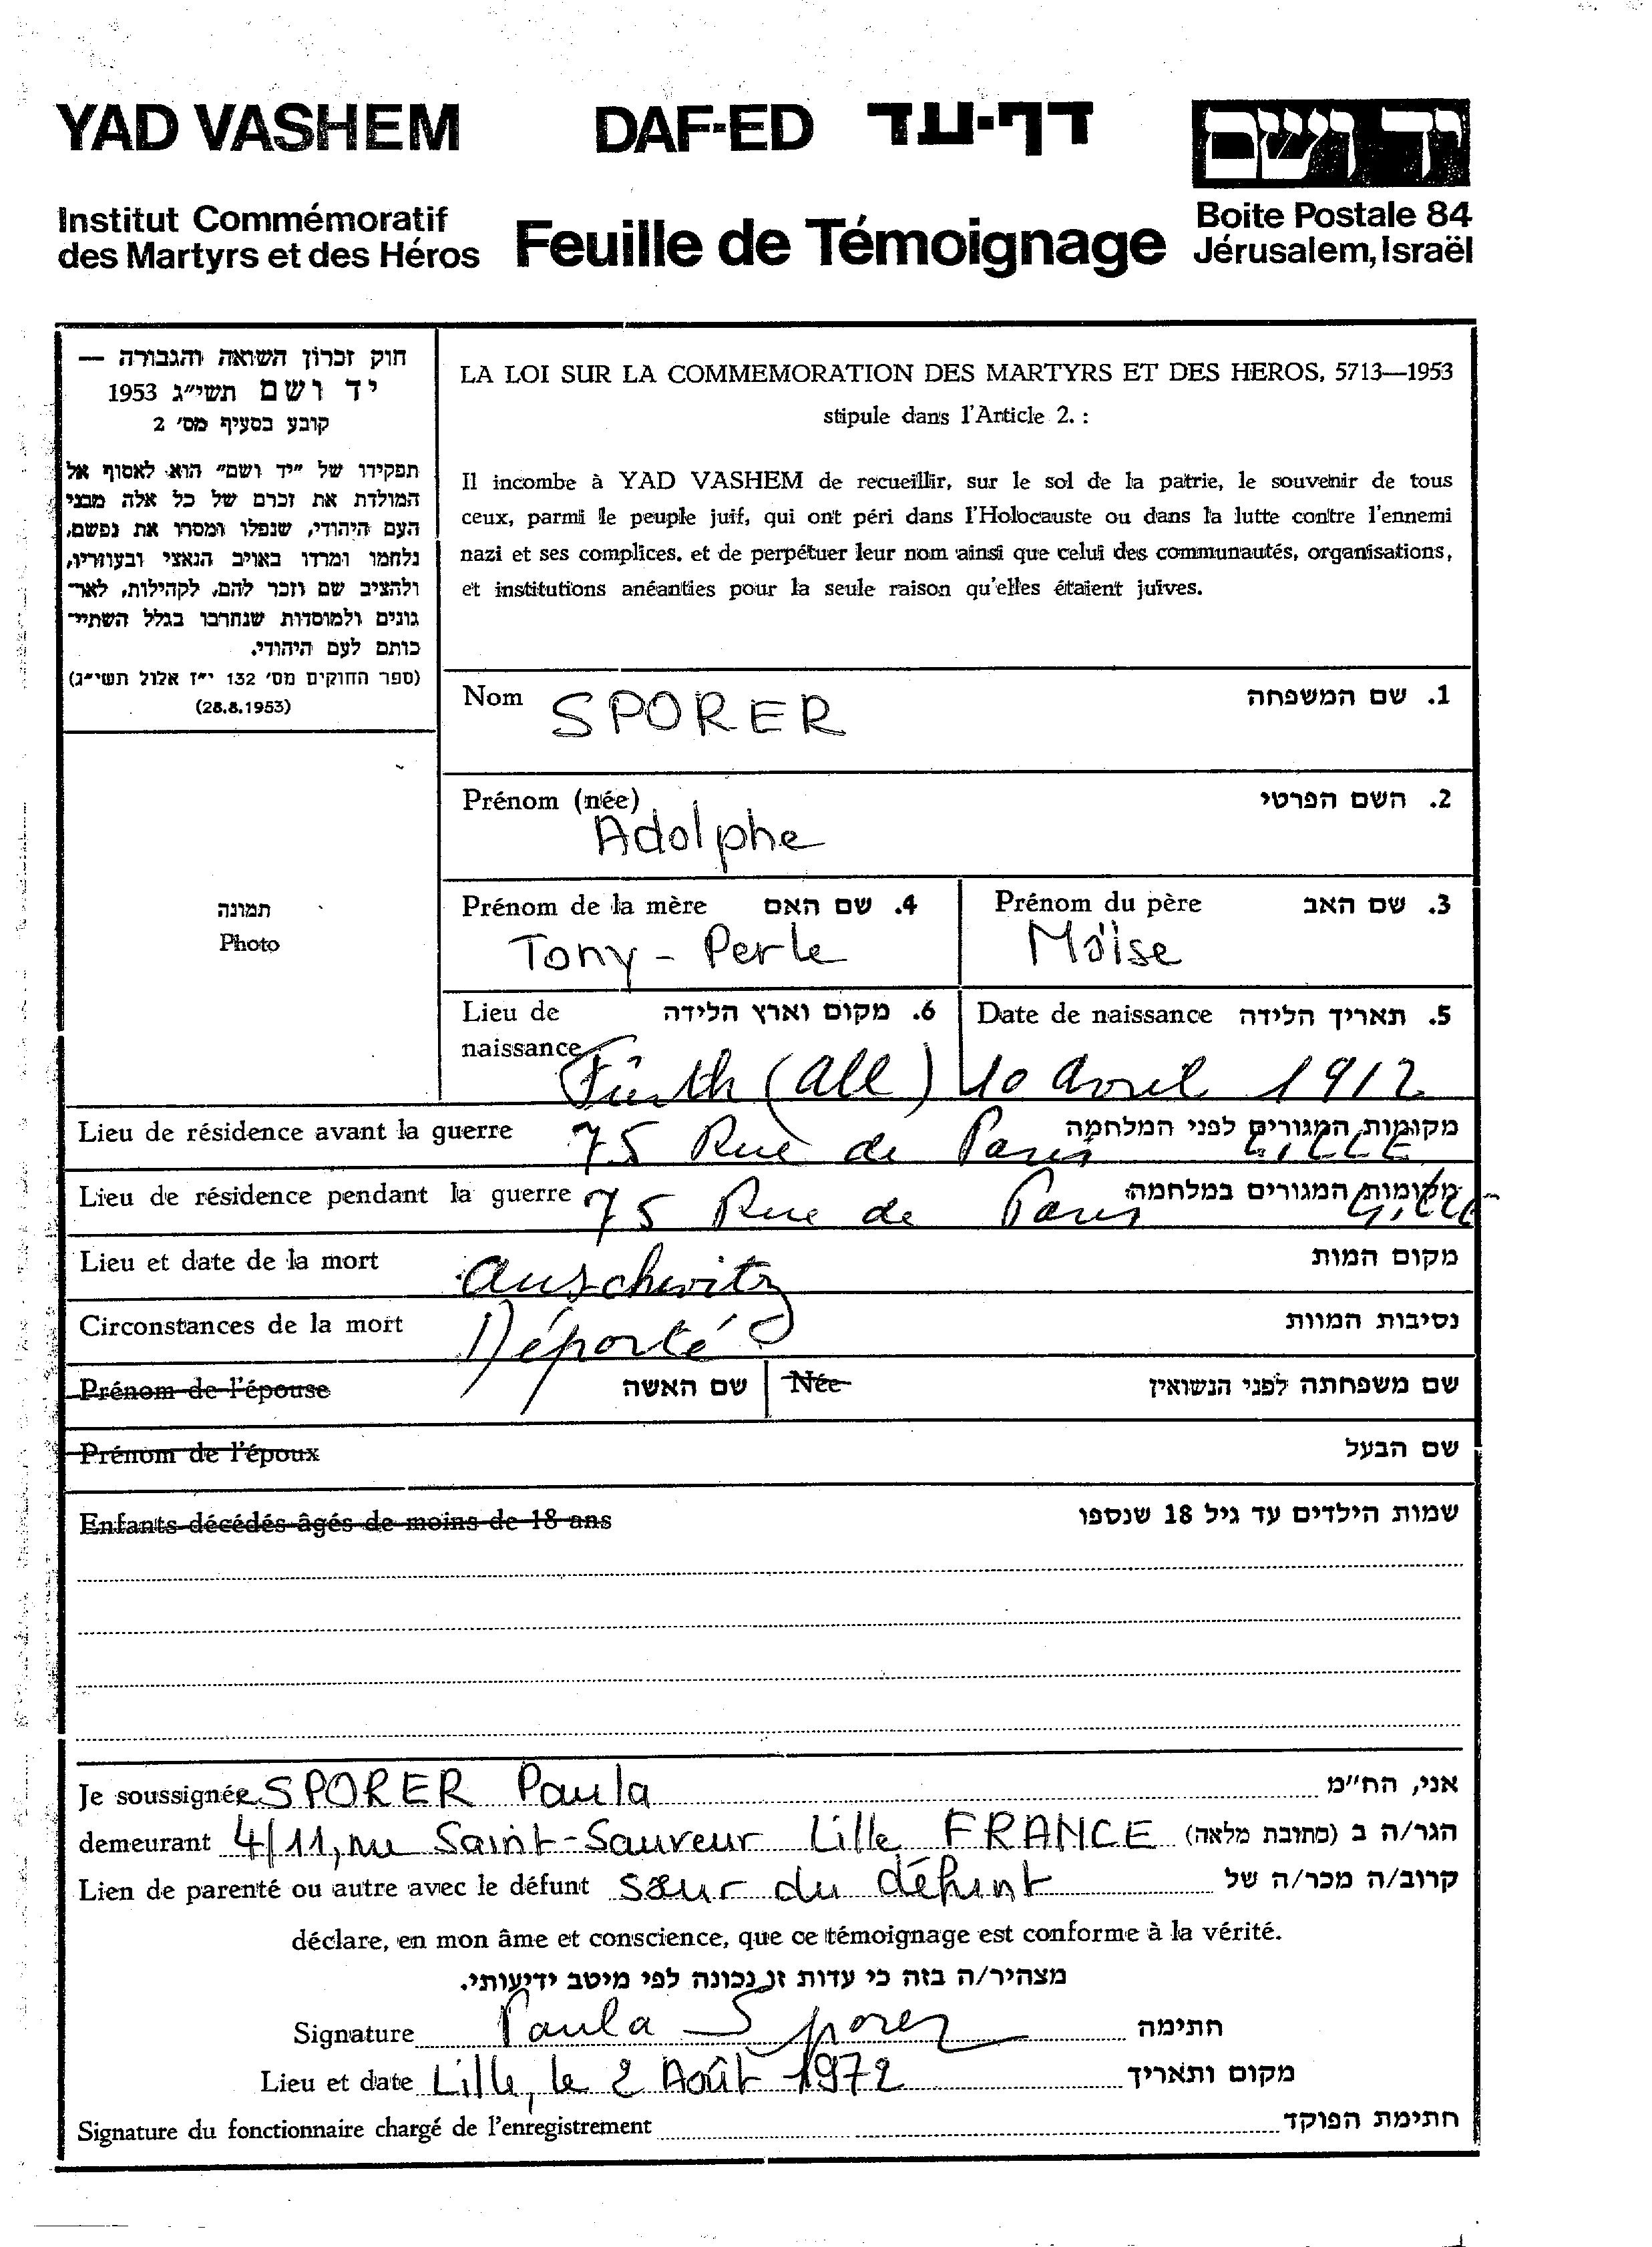 YAD VASHEM DAF-ED דף-עד יד ושם
Institut Commémoratif
des Martyrs et des Héros
Feuille de Témoignage
Boite Postale 84
Jérusalem, Israël
חוק זכרון השואה והגבורה —
יד ושם תשי״ג 1953
קובע בסעיף מס׳ 2
תפקידו של ״יד ושם״ הוא לאסוף אל
המולדת את זכרם של כל אלה מבני
העם היהודי, שנפלו ומסרו את נפשם,
נלחמו ומרדו באויב הנאצי ובעוזריו,
ולהציב שם וזכר להם, לקהילות, לאר־
גונים ולמוסדות שנחרבו בגלל השתיי־
כותם לעם היהודי.
(ספר החוקים מס׳ 132 י״ז אלול תשי״ג)
(28.8.1953)
תמונה
Photo
LA LOI SUR LA COMMEMORATION DES MARTYRS ET DES HEROS, 5713—1953
stipule dans l'Article 2. :
Il incombe à YAD VASHEM de recueillir, sur le sol de la patrie, le souvenir de tous
ceux, parmi le peuple juif, qui ont péri dans l'Holocauste ou dans la lutte contre l'ennemi
nazi et ses complices, et de perpétuer leur nom ainsi que celui des communautés, organisations,
et institutions anéanties pour la seule raison qu'elles étaient juives.
Nom SPORER 1. שם המשפחה
Prénom (née) 2. השם הפרטי
Adolphe
Prénom de la mère 4. שם האם Prénom du père 3. שם האב
Tony - Perle Moïse
Lieu de 6. מקום וארץ הלידה Date de naissance 5. תאריך הלידה
naissance Fürth (All) 10 Avril 1912
Lieu de résidence avant la guerre 75 Rue de Paris LILLE מקומות המגורים לפני המלחמה
Lieu de résidence pendant la guerre 75 Rue de Paris Lille מקומות המגורים במלחמה
Lieu et date de la mort Auschwitz מקום המות
Circonstances de la mort Déporté נסיבות המוות
Prénom de l'épouse שם האשה Née שם משפחתה לפני הנשואין
Prénom de l'époux שם הבעל
Enfants décédés âgés de moins de 18 ans שמות הילדים עד גיל 18 שנספו
Je soussignée SPORER Paula אני, הח״מ
demeurant 4/11, rue Saint-Sauveur Lille FRANCE הגר/ה ב (כתובת מלאה)
Lien de parenté ou autre avec le défunt sœur du défunt קרוב/ה מכר/ה של
déclare, en mon âme et conscience, que ce témoignage est conforme à la vérité.
מצהיר/ה בזה כי עדות זו נכונה לפי מיטב ידיעותי.
Signature Paula Sporer חתימה
Lieu et date Lille, le 2 Août 1972 מקום ותאריך
Signature du fonctionnaire chargé de l'enregistrement חתימת הפוקד